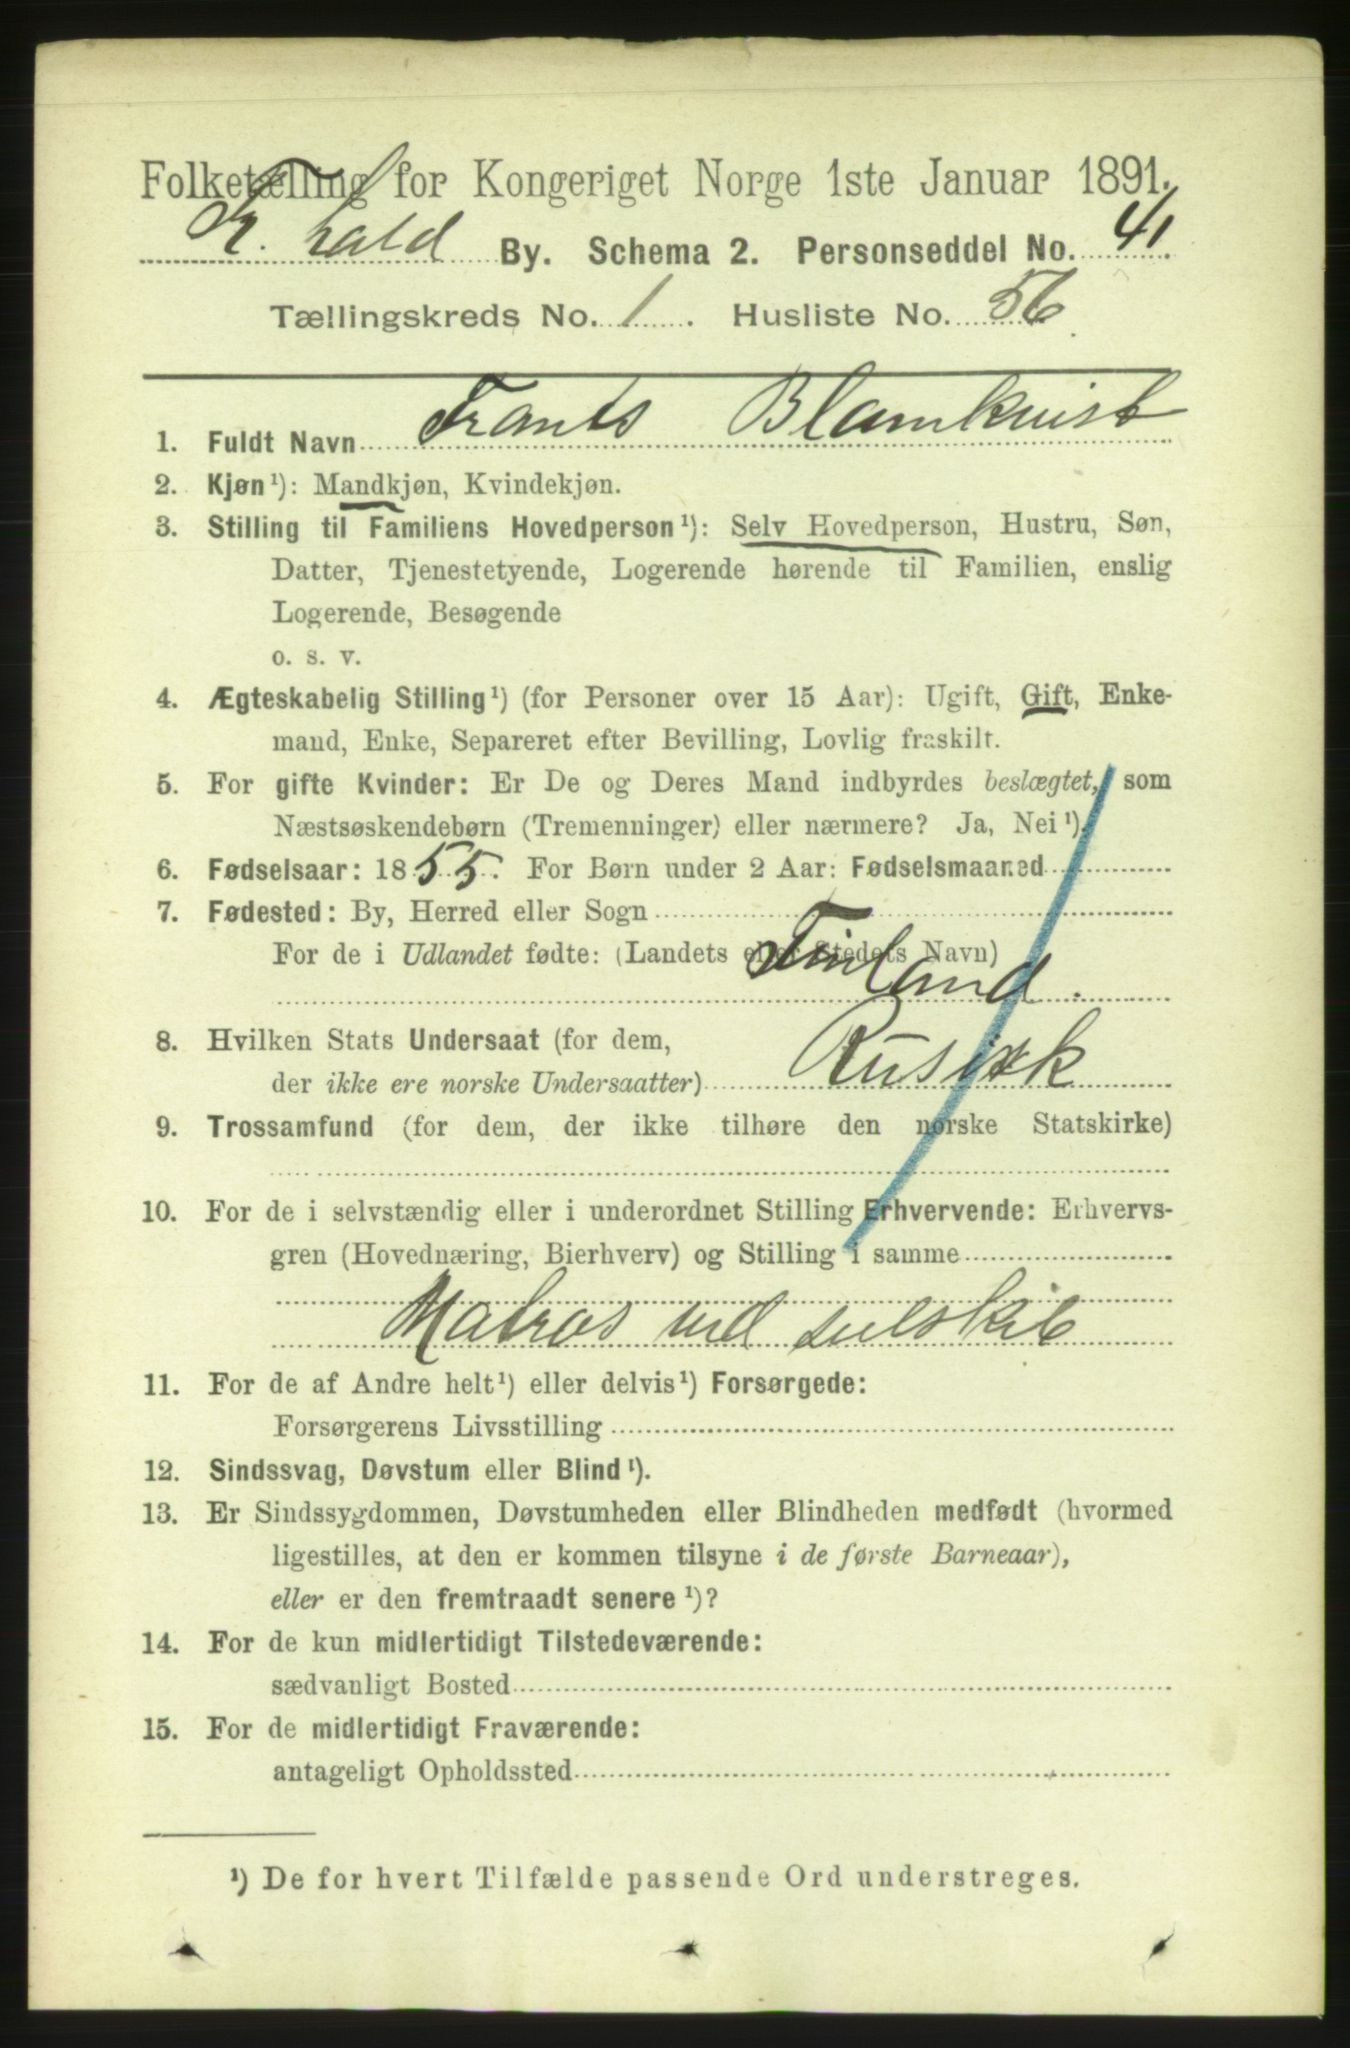 Folketælling for Kongeriget Norge 1ste Januar 1891.
Fr. hald By. Schema 2. Personseddel No. 41
Tællingskreds No. 1. Husliste No. 56
1. Fuldt Navn Frants Blamkvist
2. Kjøn¹): Mandkjøn, Kvindekjøn.
3. Stilling til Familiens Hovedperson¹): Selv Hovedperson, Hustru, Søn,
Datter, Tjenestetyende, Logerende hørende til Familien, enslig
Logerende, Besøgende
o. s. v.
4. Ægteskabelig Stilling¹) (for Personer over 15 Aar): Ugift, Gift, Enke-
mand, Enke, Separeret efter Bevilling, Lovlig fraskilt.
5. For gifte Kvinder: Er De og Deres Mand indbyrdes beslægtet, som
Næstsøskendebørn (Tremenninger) eller nærmere? Ja, Nei¹).
6. Fødselsaar: 1855. For Børn under 2 Aar: Fødselsmaaned
7. Fødested: By, Herred eller Sogn
For de i Udlandet fødte: (Landets eller Stedets Navn)
Finland.
8. Hvilken Stats Undersaat (for dem,
der ikke ere norske Undersaatter) Rusisk
9. Trossamfund (for dem, der ikke tilhøre den norske Statskirke)
10. For de i selvstændig eller i underordnet Stilling Erhvervende: Erhvervs-
gren (Hovednæring, Bierhverv) og Stilling i samme
Matros ved seilskib
11. For de af Andre helt¹) eller delvis¹) Forsørgede:
Forsørgerens Livsstilling
12. Sindssvag, Døvstum eller Blind¹).
13. Er Sindssygdommen, Døvstumheden eller Blindheden medfødt (hvormed
ligestilles, at den er kommen tilsyne i de første Barneaar),
eller er den fremtraadt senere¹)?
14. For de kun midlertidigt Tilstedeværende:
sædvanligt Bosted
15. For de midlertidigt Fraværende:
antageligt Opholdssted
¹) De for hvert Tilfælde passende Ord understreges.